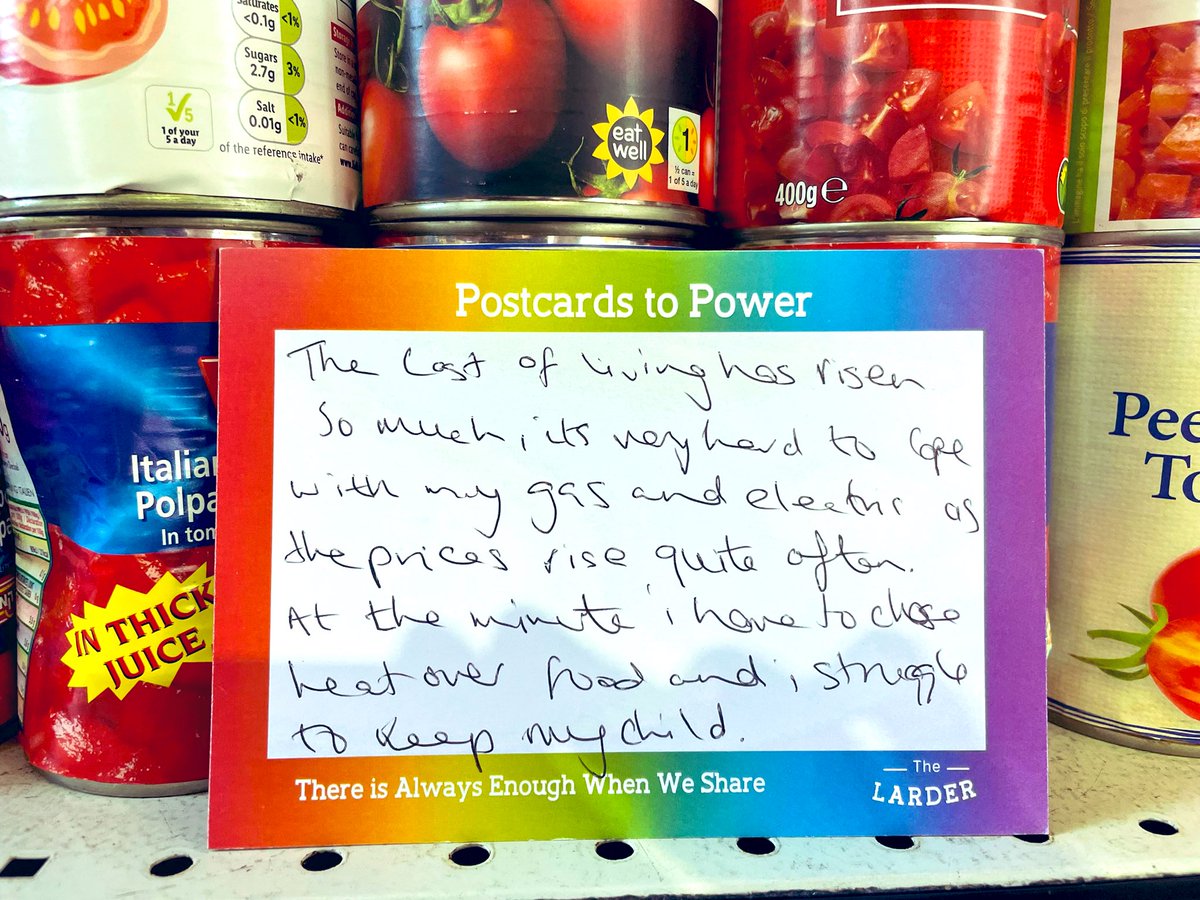 Saturates
<0.1g <1%
Sugars
2.7g 3%
Salt
0.01g <1%
of the reference intake*
1/5
1 of your
5 a day
eat
well
1
½ can =
1 of 5 a day
400g e
Italian
Polpa
In tom
IN THICK
JUICE
Pee
To
Postcards to Power
The Cost of living has risen
So much, its very hard to Cope
with my gas and electric as
the prices rise quite often.
At the minute i have to chose
heat over food and i struggle
to keep my child.
There is Always Enough When We Share
The
LARDER